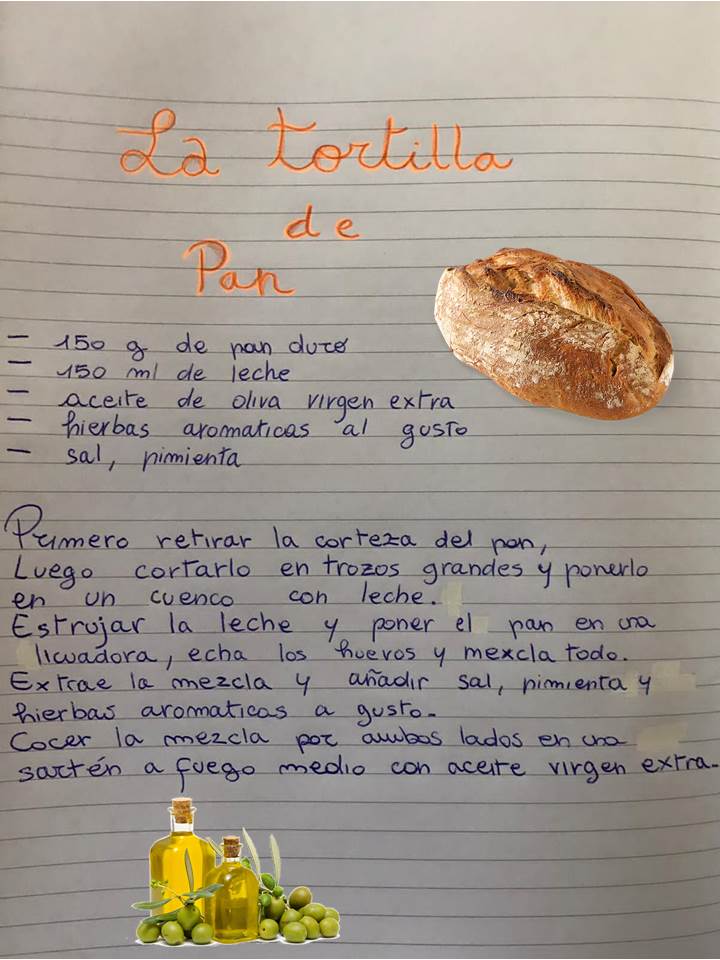 La tortilla
de
Pan
- 150 g de pan duro
- 150 ml de leche
- aceite de oliva virgen extra
- hierbas aromaticas al gusto
- sal, pimienta
Primero retirar la corteza del pan,
Luego cortarlo en trozos grandes y ponerlo
en un cuenco con leche.
Estrujar la leche y poner el pan en una
licuadora, echa los huevos y mexcla todo.
Extrae la mezcla y añadir sal, pimienta y
hierbas aromaticas a gusto.
Cocer la mezcla por ambos lados en una
sartén a fuego medio con aceite virgen extra.